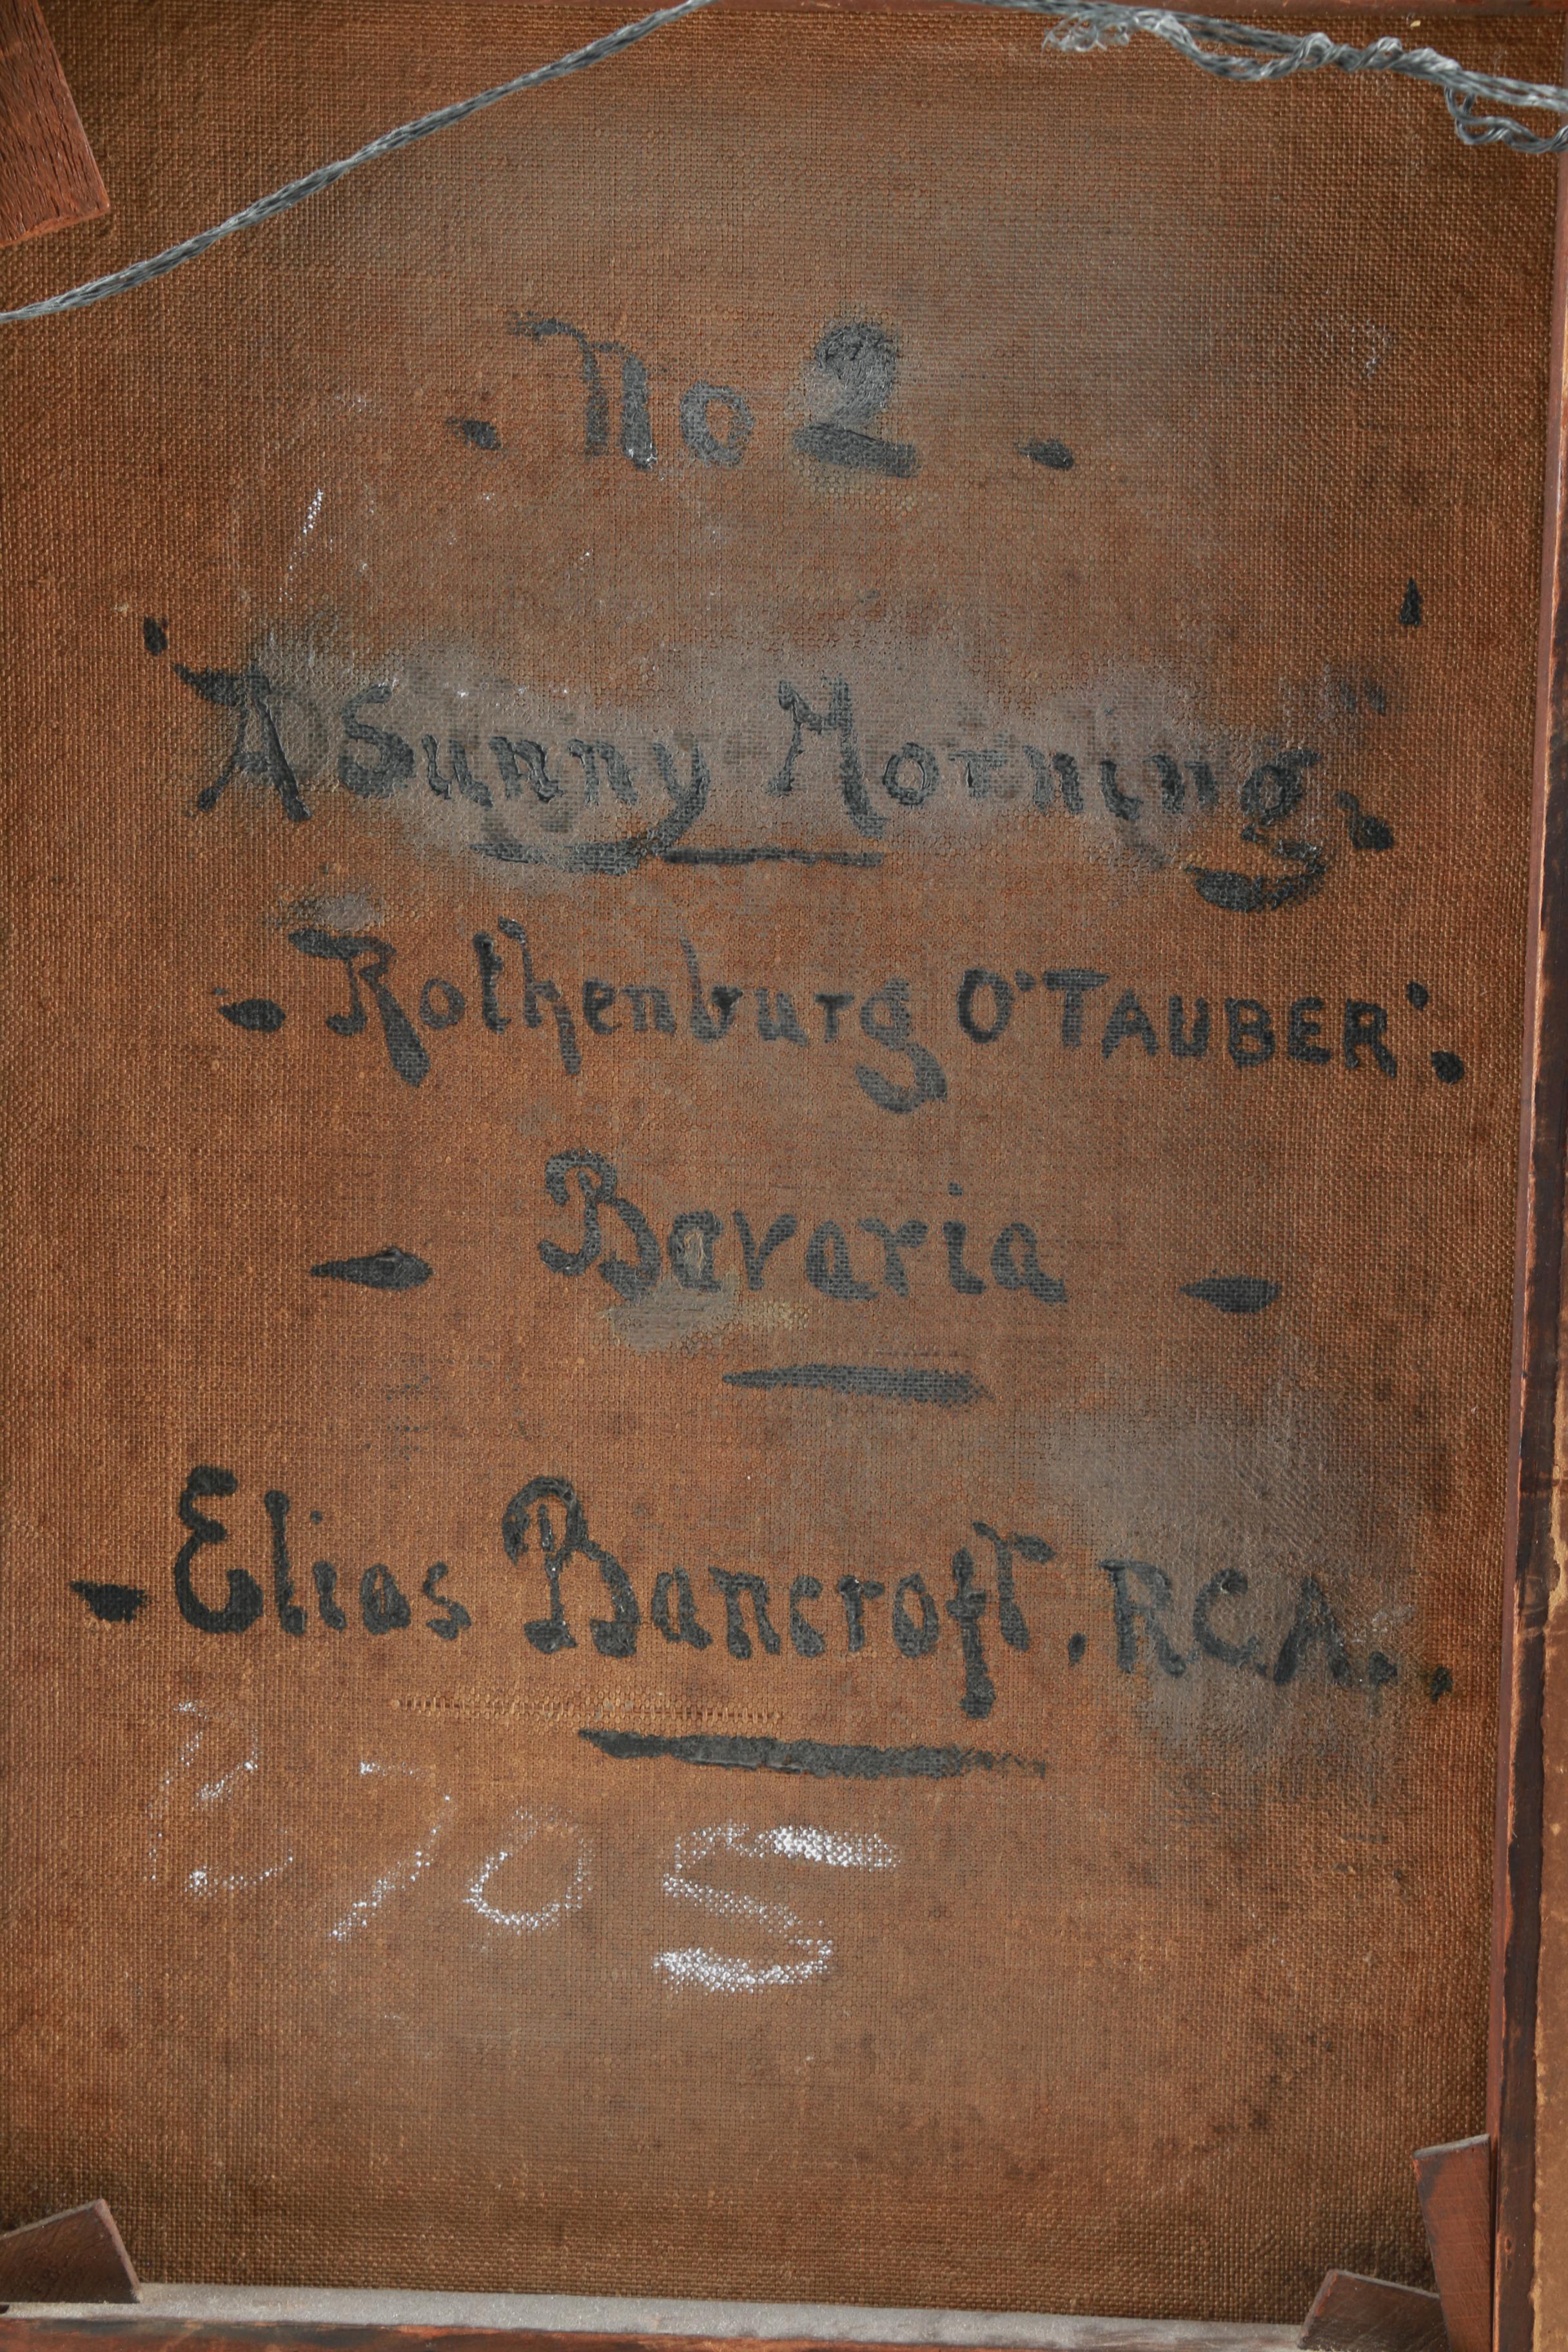 - No 2 -
'A Sunny Morning,'
- Rothenburg O'TAUBER'.
- Bavaria -
- Elias Bancroft. RCA..
B705